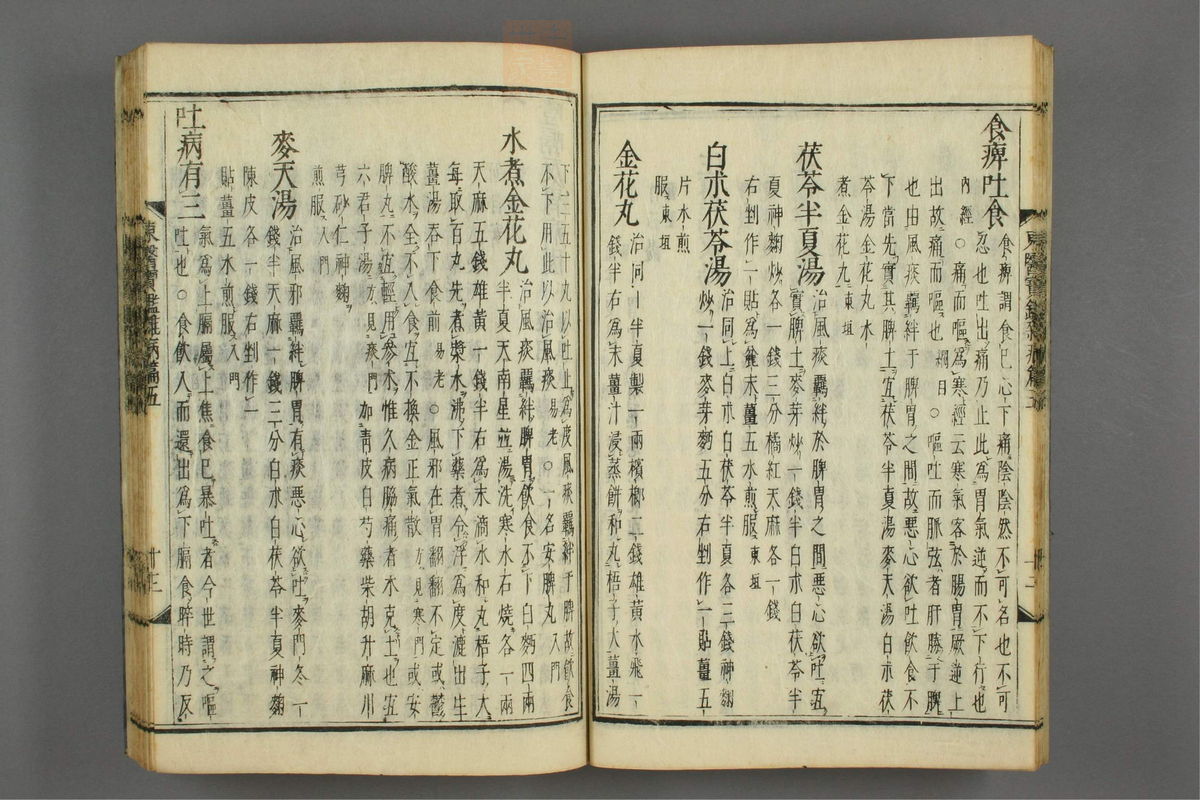 食痺吐食 食痺謂食已心下痛陰陰然不可名也不可
忍也吐出痛乃止此為胃氣逆而不下行也
內經○痛而嘔為寒經云寒氣客於腸胃厥逆上
出故痛而嘔也綱目○嘔吐而脈弦者肝勝于脾
也由風痰羈絆于脾胃之間故惡心欲吐飲食不
下當先實其脾土宜茯苓半夏湯麥天湯白朮茯
苓湯金花丸水
煮金花丸東垣
茯苓半夏湯 治風痰羈絆於脾胃之間惡心欲吐宜
實脾土麥芽炒一錢半白朮白茯苓半
夏神麴炒各一錢三分橘紅天麻各一錢
右剉作一貼為麄末薑五水煎服東垣
白朮茯苓湯 治同上白朮白茯苓半夏各三錢神麴
炒一錢麥芽麴五分右剉作一貼薑五
片水煎
服東垣
金花丸 治同上半夏製一兩檳榔二錢雄黃水飛一
錢半右為末薑汁浸蒸餅和丸梧子大薑湯
下三五十丸以吐止為度風痰羈絆于脾故飲食
不下用此以治風痰易老○一名安脾丸入門
水煮金花丸 治風痰羈絆脾胃飲食不下白麪四兩
半夏天南星並湯洗寒水石燒各一兩
天麻五錢雄黃一錢半右為末滴水和丸梧子大
每取百丸先煮漿水沸下藥煮令浮為度漉出生
薑湯吞下食前易老○風邪在胃翻翻不定或鬱
酸水全不入食宜不換金正氣散方見寒門或安
脾丸不宜輕用參朮惟久病脇痛者木克土也宜
六君子湯方見痰門加靑皮白芍藥柴胡升麻川
芎砂仁神麴
煎服入門
麥天湯 治風邪羈絆脾胃有痰惡心欲吐麥門冬一
錢半天麻一錢三分白朮白茯苓半夏神麴
陳皮各一錢右剉作一
貼薑五水煎服入門
吐病有三 氣為上膈屬上焦食已暴吐者今世謂之嘔
吐也○食飲入而還出為下膈食晬時乃反